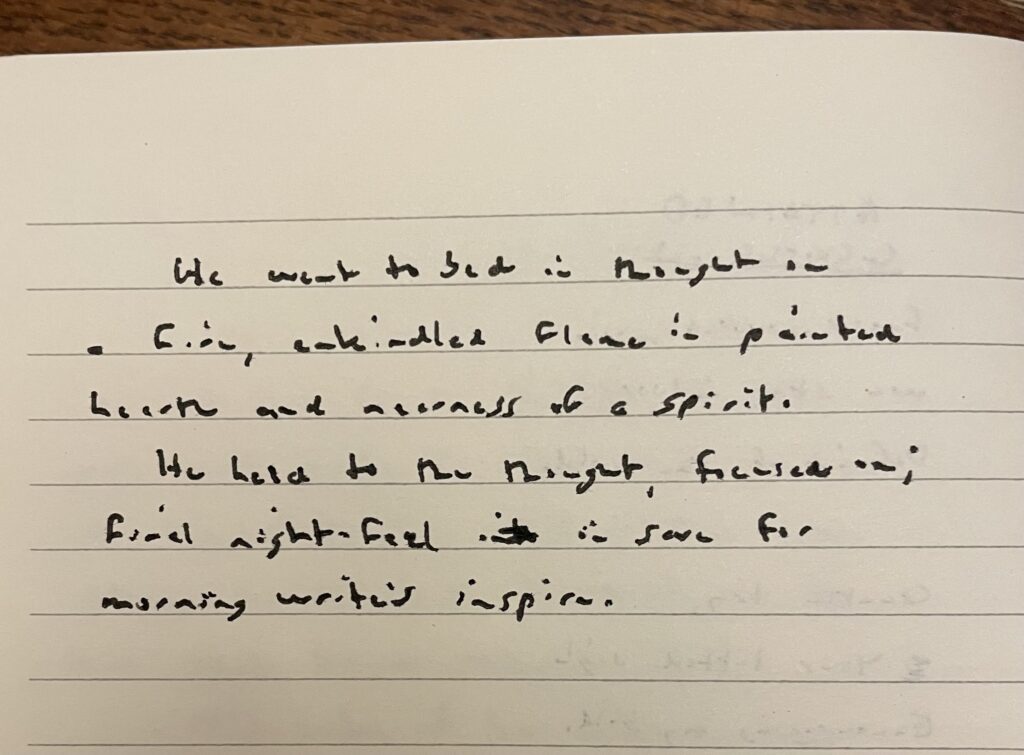 He went to bed in thought on
a fire, enkindled flame in painted
hearth and nearness of a spirit.
He held to the thought, focused on;
final night-feel in save for
morning write's inspire.